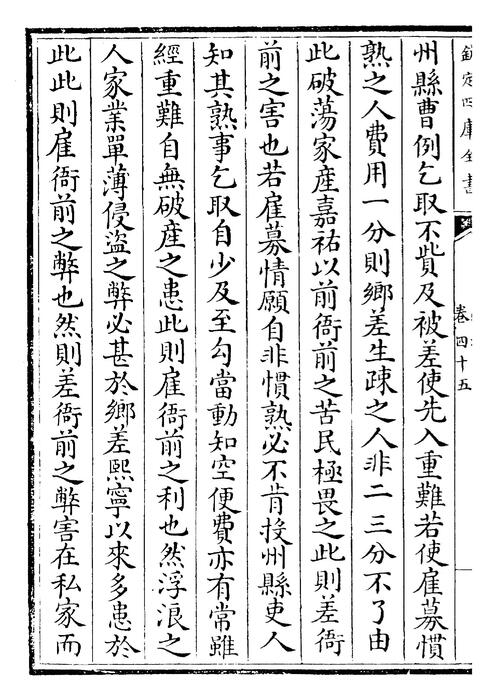 欽定四庫全書
卷四十五
州縣曹例乞取不貲及被差使先入重難若使雇募慣
熟之人費用一分則鄉差生疎之人非二三分不了由
此破蕩家産嘉祐以前衙前之苦民極畏之此則差衙
前之害也若雇募情願自非慣熟必不肯投州縣吏人
知其熟事乞取自少及至勾當動知空便費亦有常雖
經重難自無破産之患此則雇衙前之利也然浮浪之
人家業單薄侵盜之弊必甚於鄉差熙寧以來多患於
此此則雇衙前之弊也然則差衙前之弊害在私家而